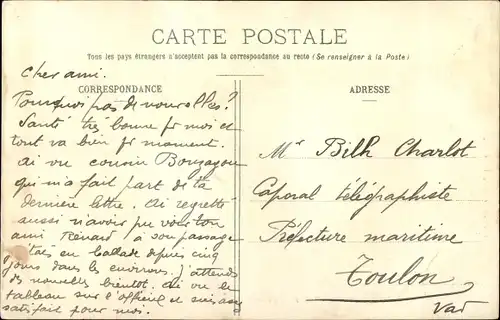 CARTE POSTALE
Tous les pays étrangers n'acceptent pas la correspondance au recto (Se renseigner à la Poste)
CORRESPONDANCE
ADRESSE
Cher ami.
Pourquoi pas de nouvelles?
Santé très bonne pr moi et
tout va bien pr moment.
ai vu cousin
qui m'a fait part de ta
dernière lettre. Ai regretté
aussi n'avoir pu voir ton
ami Renard à son passage
étais en ballade depuis cinq
jours dans les environs. j'attends
de nouvelles bientôt. ai vu le
tableau sur l'officiel et suis
satisfait pour moi.
Mr Bilh Charlot
Caporal télégraphiste
Préfecture maritime
Toulon
Var